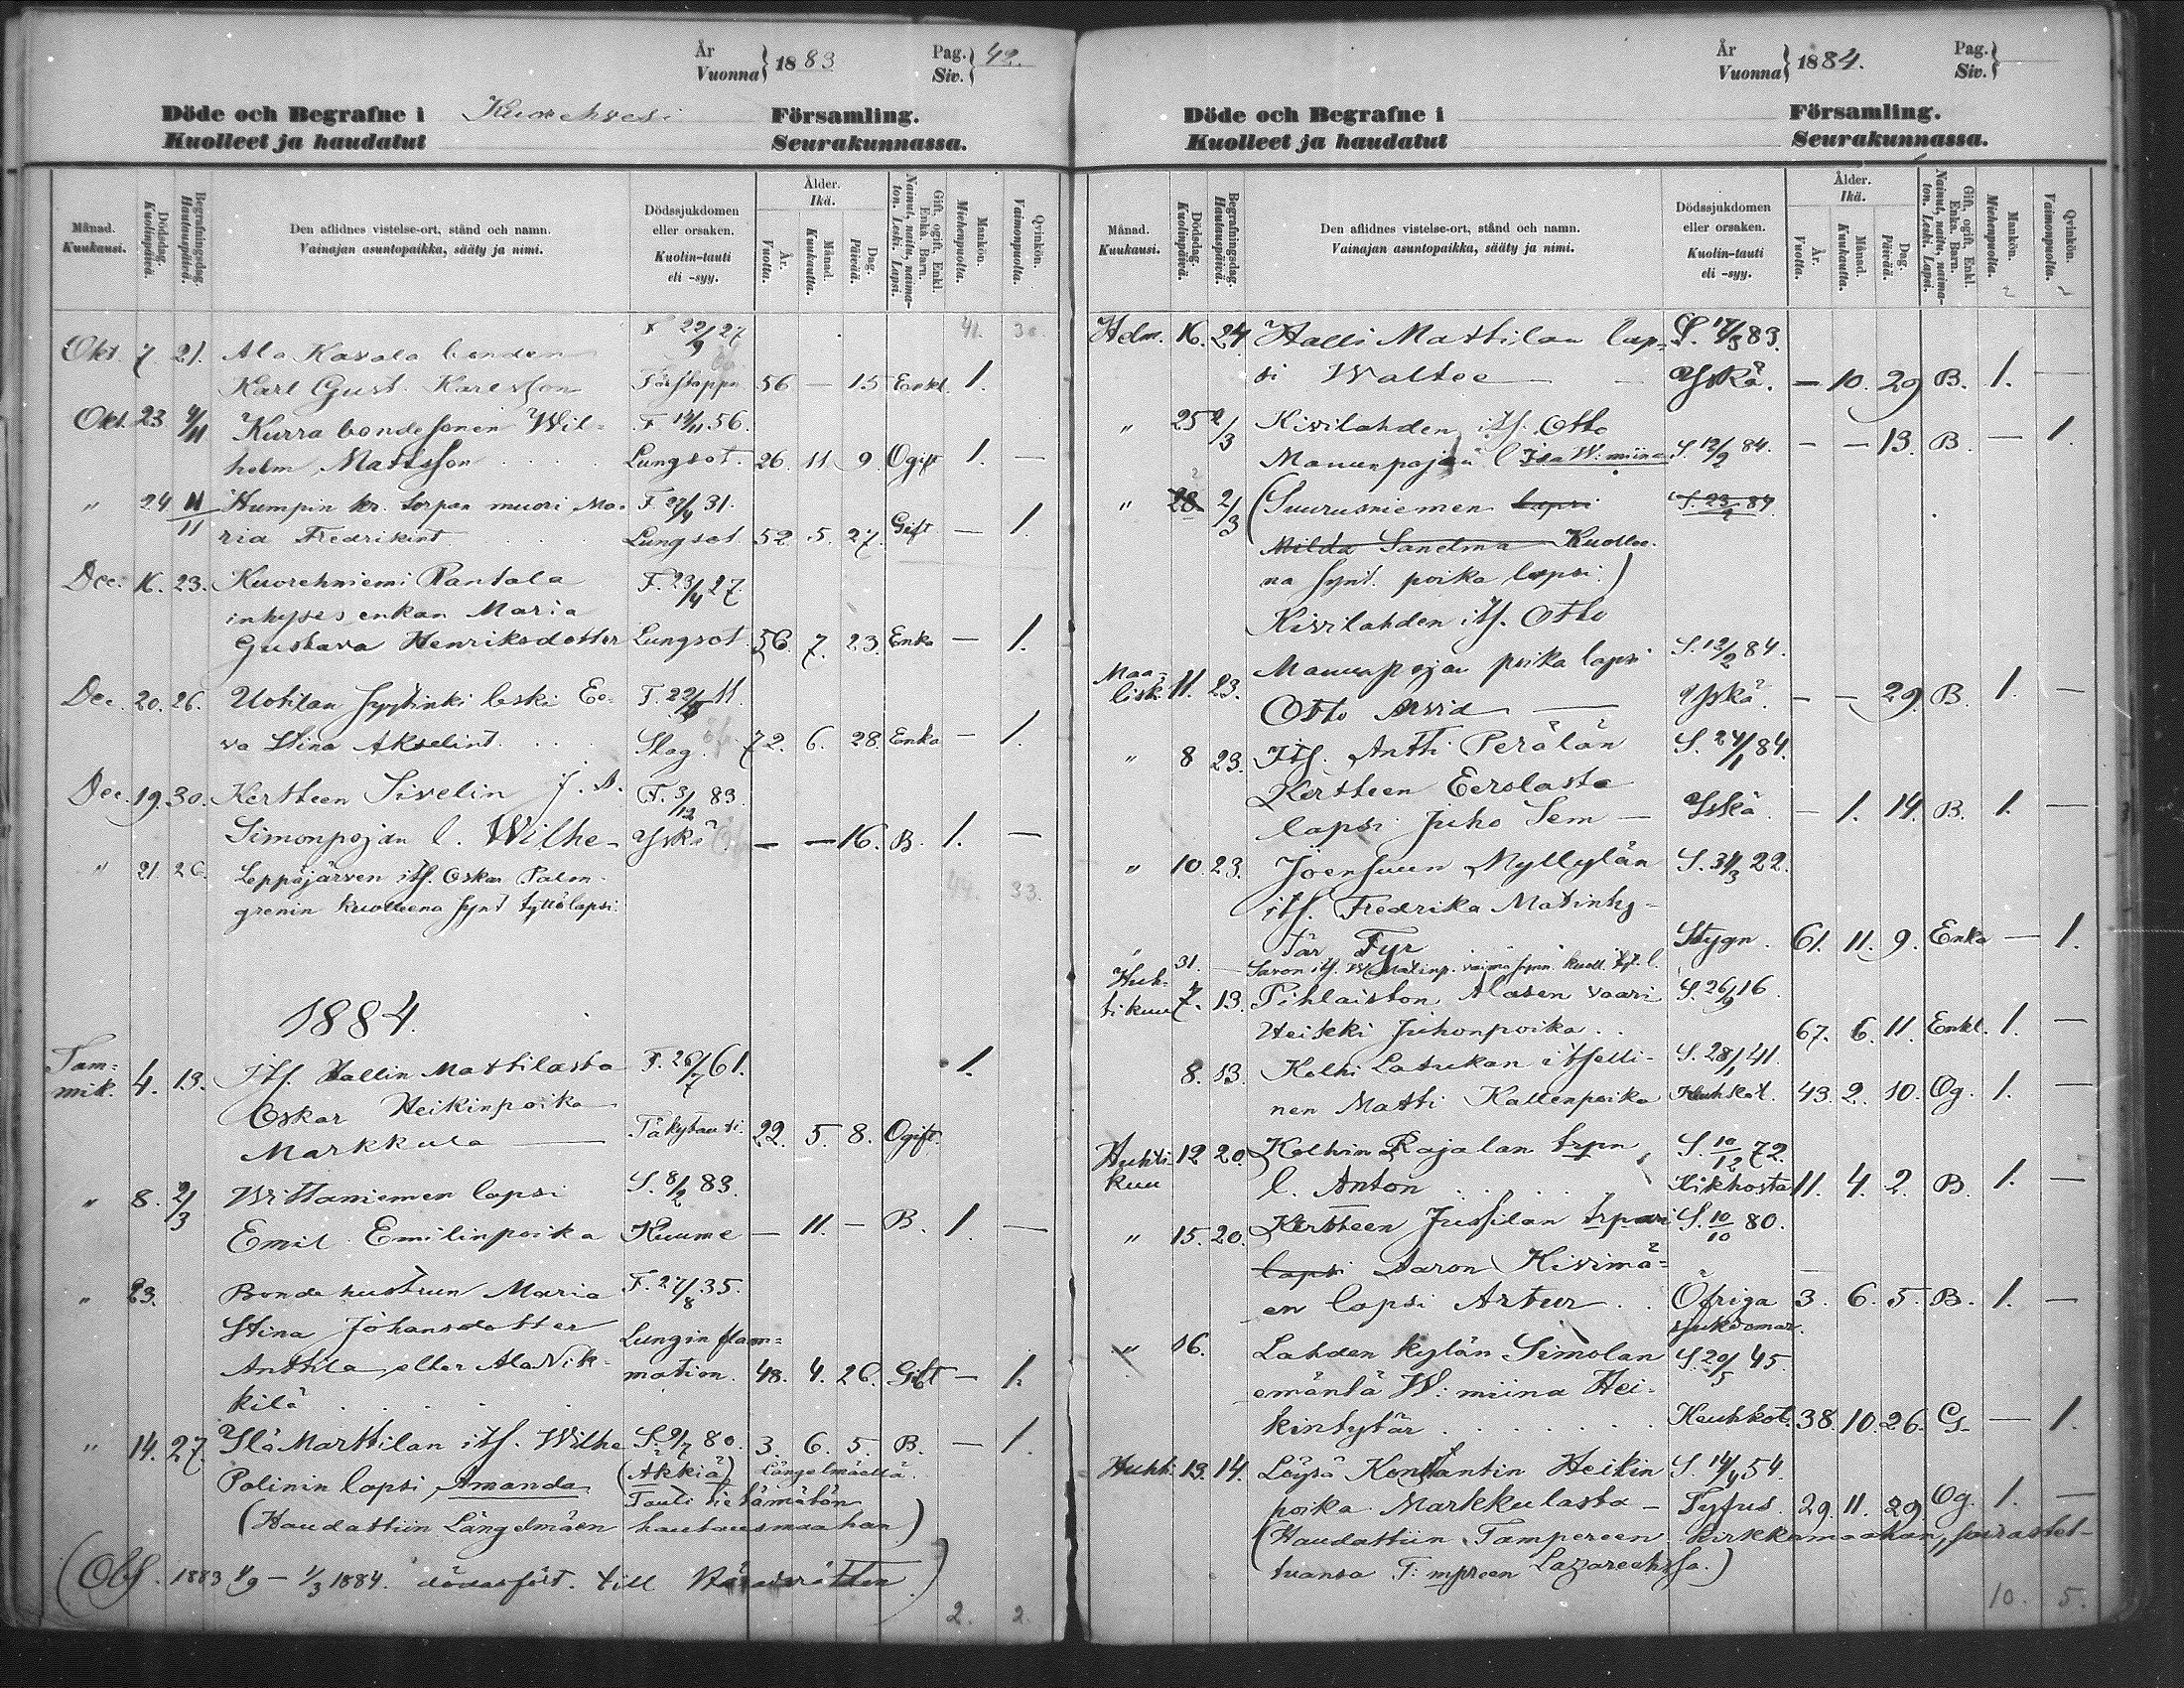 År
Vuonna } 1883
Pag.
Siv. } 42.
Döde och Begrafne i Kuorehvesi Församling.
Kuolleet ja haudatut Seurakunnassa.
Månad.
Kuukausi.
Dödsdag.
Kuolinpäivä.
Begrafningsdag.
Hautauspäivä.
Den aflidnes vistelse-ort, stånd och namn.
Vainajan asuntopaikka, sääty ja nimi.
Dödssjukdomen
eller orsaken.
Kuolin-tauti
eli -syy.
Ålder.
Ikä.
År.
Vuotta.
Månad.
Kuukautta.
Dag.
Päivää.
Gift, ogift, Enkl.
Enka. Barn.
Nainut, naitu, naima-
ton. Leski. Lapsi.
Mankön.
Miehenpuolta.
Qvinkön.
Vaimonpuolta.
F 22/9 27 41. 30.
Okt. 7 21. Ala Kavala bonden
Karl Gust. Karlsson 56 — 15 Enkl. 1.
Okt. 23 4/11 Kurra bondesonen Wil- F 14/11 56.
helm Mattsson Lungsot. 26. 11 9. Ogift 1. —
" 24 11/11 Humpin kr. torpan muori Ma- F 27/4 31.
ria Fredrikint. Lungsot 52. 5. 27. Gift — 1.
Dec. 16. 23. Kuorehniemi Rantala F. 23/4 27.
inhyses enkan Maria
Gustava Henriksdotter Lungsot 56. 7. 23. Enka — 1.
Dec. 20. 26. Uotilan syytinki leski Ee- F. 22/5 11.
va Stina Akselint. Slag. 72. 6. 28. Enka — 1.
Dec. 19. 30. Kertteen Sivelin F. 3/12 83.
Simonpojan l. Wilhe- Yskä — — 16. B. 1. —
" 21. 26. Leppäjärven its. Oskar Palm-
grenin kuolleena synt tyttölapsi. 44. 33.
1884.
Tam-
mik. 4. 13. Its. Hallin Mattilasta F. 26/7 61. 1.
Oskar Heikinpoika
Markkula — Täkytauti. 22. 5. 8. Ogift.
" 8. 2/3 Wittaniemen lapsi S. 8/2 83.
Emil Emilinpoika Kuume — 11. — B. 1. —
" 23. Bonde hustrun Maria F. 27/8 35.
Stina Johansdotter Lunginflam-
Anttila eller Ala Nik- mation. 48. 4. 26. Gift — 1.
kilä
" 14. 27. Ylä Marttilan its. Wilhe S. 9/7 80. 3. 6. 5. B. — 1.
Polinin lapsi Amanda (Akkiä) Längelmäellä.
Tauti tietämätön
(Haudattiin Längelmäen hautausmaahan)
(Obs. 1883 1/9 – 1/3 1884. dödasfört. till Häradsrätten)
2. 2.
År
Vuonna } 1884.
Pag.
Siv. }
Döde och Begrafne i Församling.
Kuolleet ja haudatut Seurakunnassa.
Månad.
Kuukausi.
Dödsdag.
Kuolinpäivä.
Begrafningsdag.
Hautauspäivä.
Den aflidnes vistelse-ort, stånd och namn.
Vainajan asuntopaikka, sääty ja nimi.
Dödssjukdomen
eller orsaken.
Kuolin-tauti
eli -syy.
Ålder.
Ikä.
År.
Vuotta.
Månad.
Kuukautta.
Dag.
Päivää.
Gift, ogift, Enkl.
Enka. Barn.
Nainut, naitu, naima-
ton. Leski. Lapsi.
Mankön.
Miehenpuolta.
Qvinkön.
Vaimonpuolta.
Helm. 16. 24. Halli Mattilan lap- S. 17/3 83.
si Waltee — Yskä. — 10. 29 B. 1. —
" 25 2/3 Kivilahden its. Otto
Manunpojan l Ida W:miina S. 12/2 84. — — 13. B. — 1.
" 28 2/3 (Suurusniemen lapsi S. 23/2 84
Milda Sanelma Kuollee-
na synt. poika lapsi.)
Kivilahden its. Otto
Maa-
lisk. 11. 23. Manunpojan poika lapsi S. 12/2 84.
Otto Arvid — Yskä. — — 29. B. 1. —
" 8 23. Its. Antti Perälän S. 24/1 84.
Kertteen Eerolasta
lapsi Juho Sem — Yskä. — 1. 14. B. 1. —
" 10. 23. Joensuun Myllylän S. 31/3 22.
its. Fredrika Matinty-
tär Tyr Stygn. 61. 11. 9. Enka — 1.
" 31. — Saron its. W Matinp. vaimo synn. kuoll. tyt. l.
Huh-
tikuu 7. 13. Pihlaiston Alasen vaari S. 26/9 16.
Heikki Juhonpoika 67. 6. 11. Enkl. 1. —
8. 13. Kolhi Latukan itselli- S. 28/1 41.
nen Matti Kallenpoika Keuhkot. 43. 2. 10. Og. 1. —
Huhti-
kuu 12 20. Kolhin Rajalan trpn S. 10/12 72.
l. Anton Hikhosta 11. 4. 2. B. 1. —
" 15. 20. Kertteen Jussilan trpari S. 10/10 80.
lapsi Aaron Hivimä-
en lapsi Artur Öfriga 3. 6. 5. B. 1. —
sjukdomar.
" 16. Lahden kylän Simolan S. 20/5 45.
emäntä W:miina Hei-
kintytär Keuhkot. 38. 10. 26. G. — 1.
Huht. 13. 14. Löysä Konstantin Heikin S. 14/4 54.
poika Markkulasta — Tyfus. 29. 11. 29. Og. 1. —
(Haudattiin Tampereen kirkkomaahan, sairastet-
tuansa T:mpreen Lazarechissa.)
10. 5.